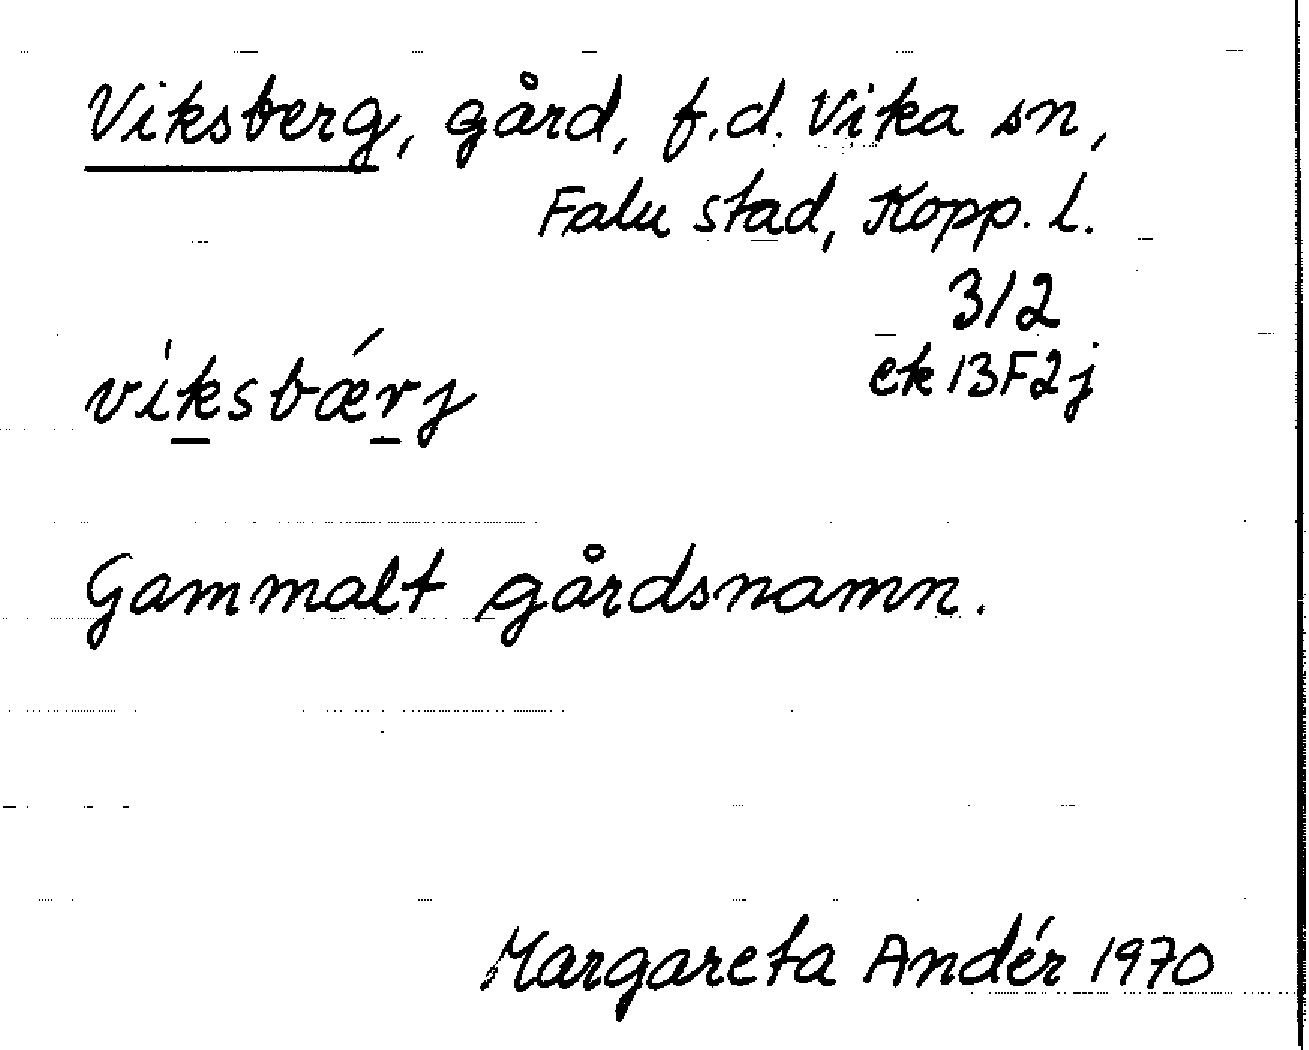 Viksberg, gård, f.d. Vika sn,
Falu stad, Kopp. l.
312
ek 13F2j
viksbærj
Gammalt gårdsnamn.
Margareta Andér 1970